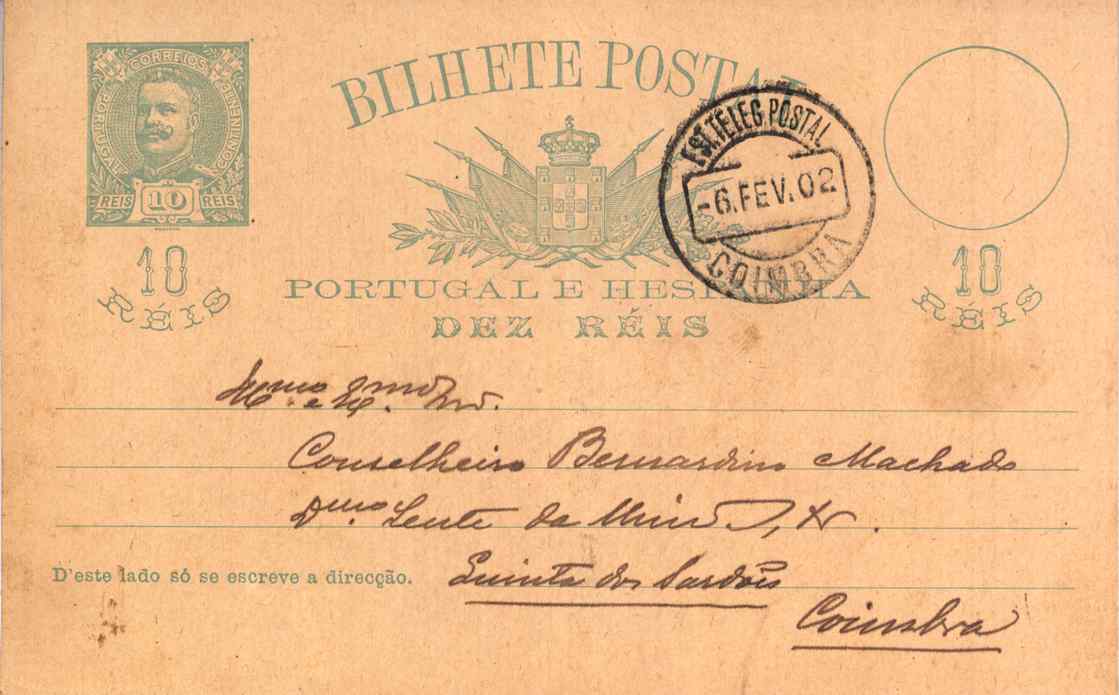 CORREIOS
PORTUGAL
CONTINENTE
REIS 10 REIS
10
RÉIS
BILHETE POSTAL
PORTUGAL E HESPANHA
DEZ RÉIS
EST. TELEG. POSTAL
-6.FEV.02
COIMBRA
10
RÉIS
Illmo e Exmo Snr.
Conselheiro Bernardino Machado
Dmo. Lente da Univ
D'este lado só se escreve a direcção.
Quinta dos Sardões
Coimbra